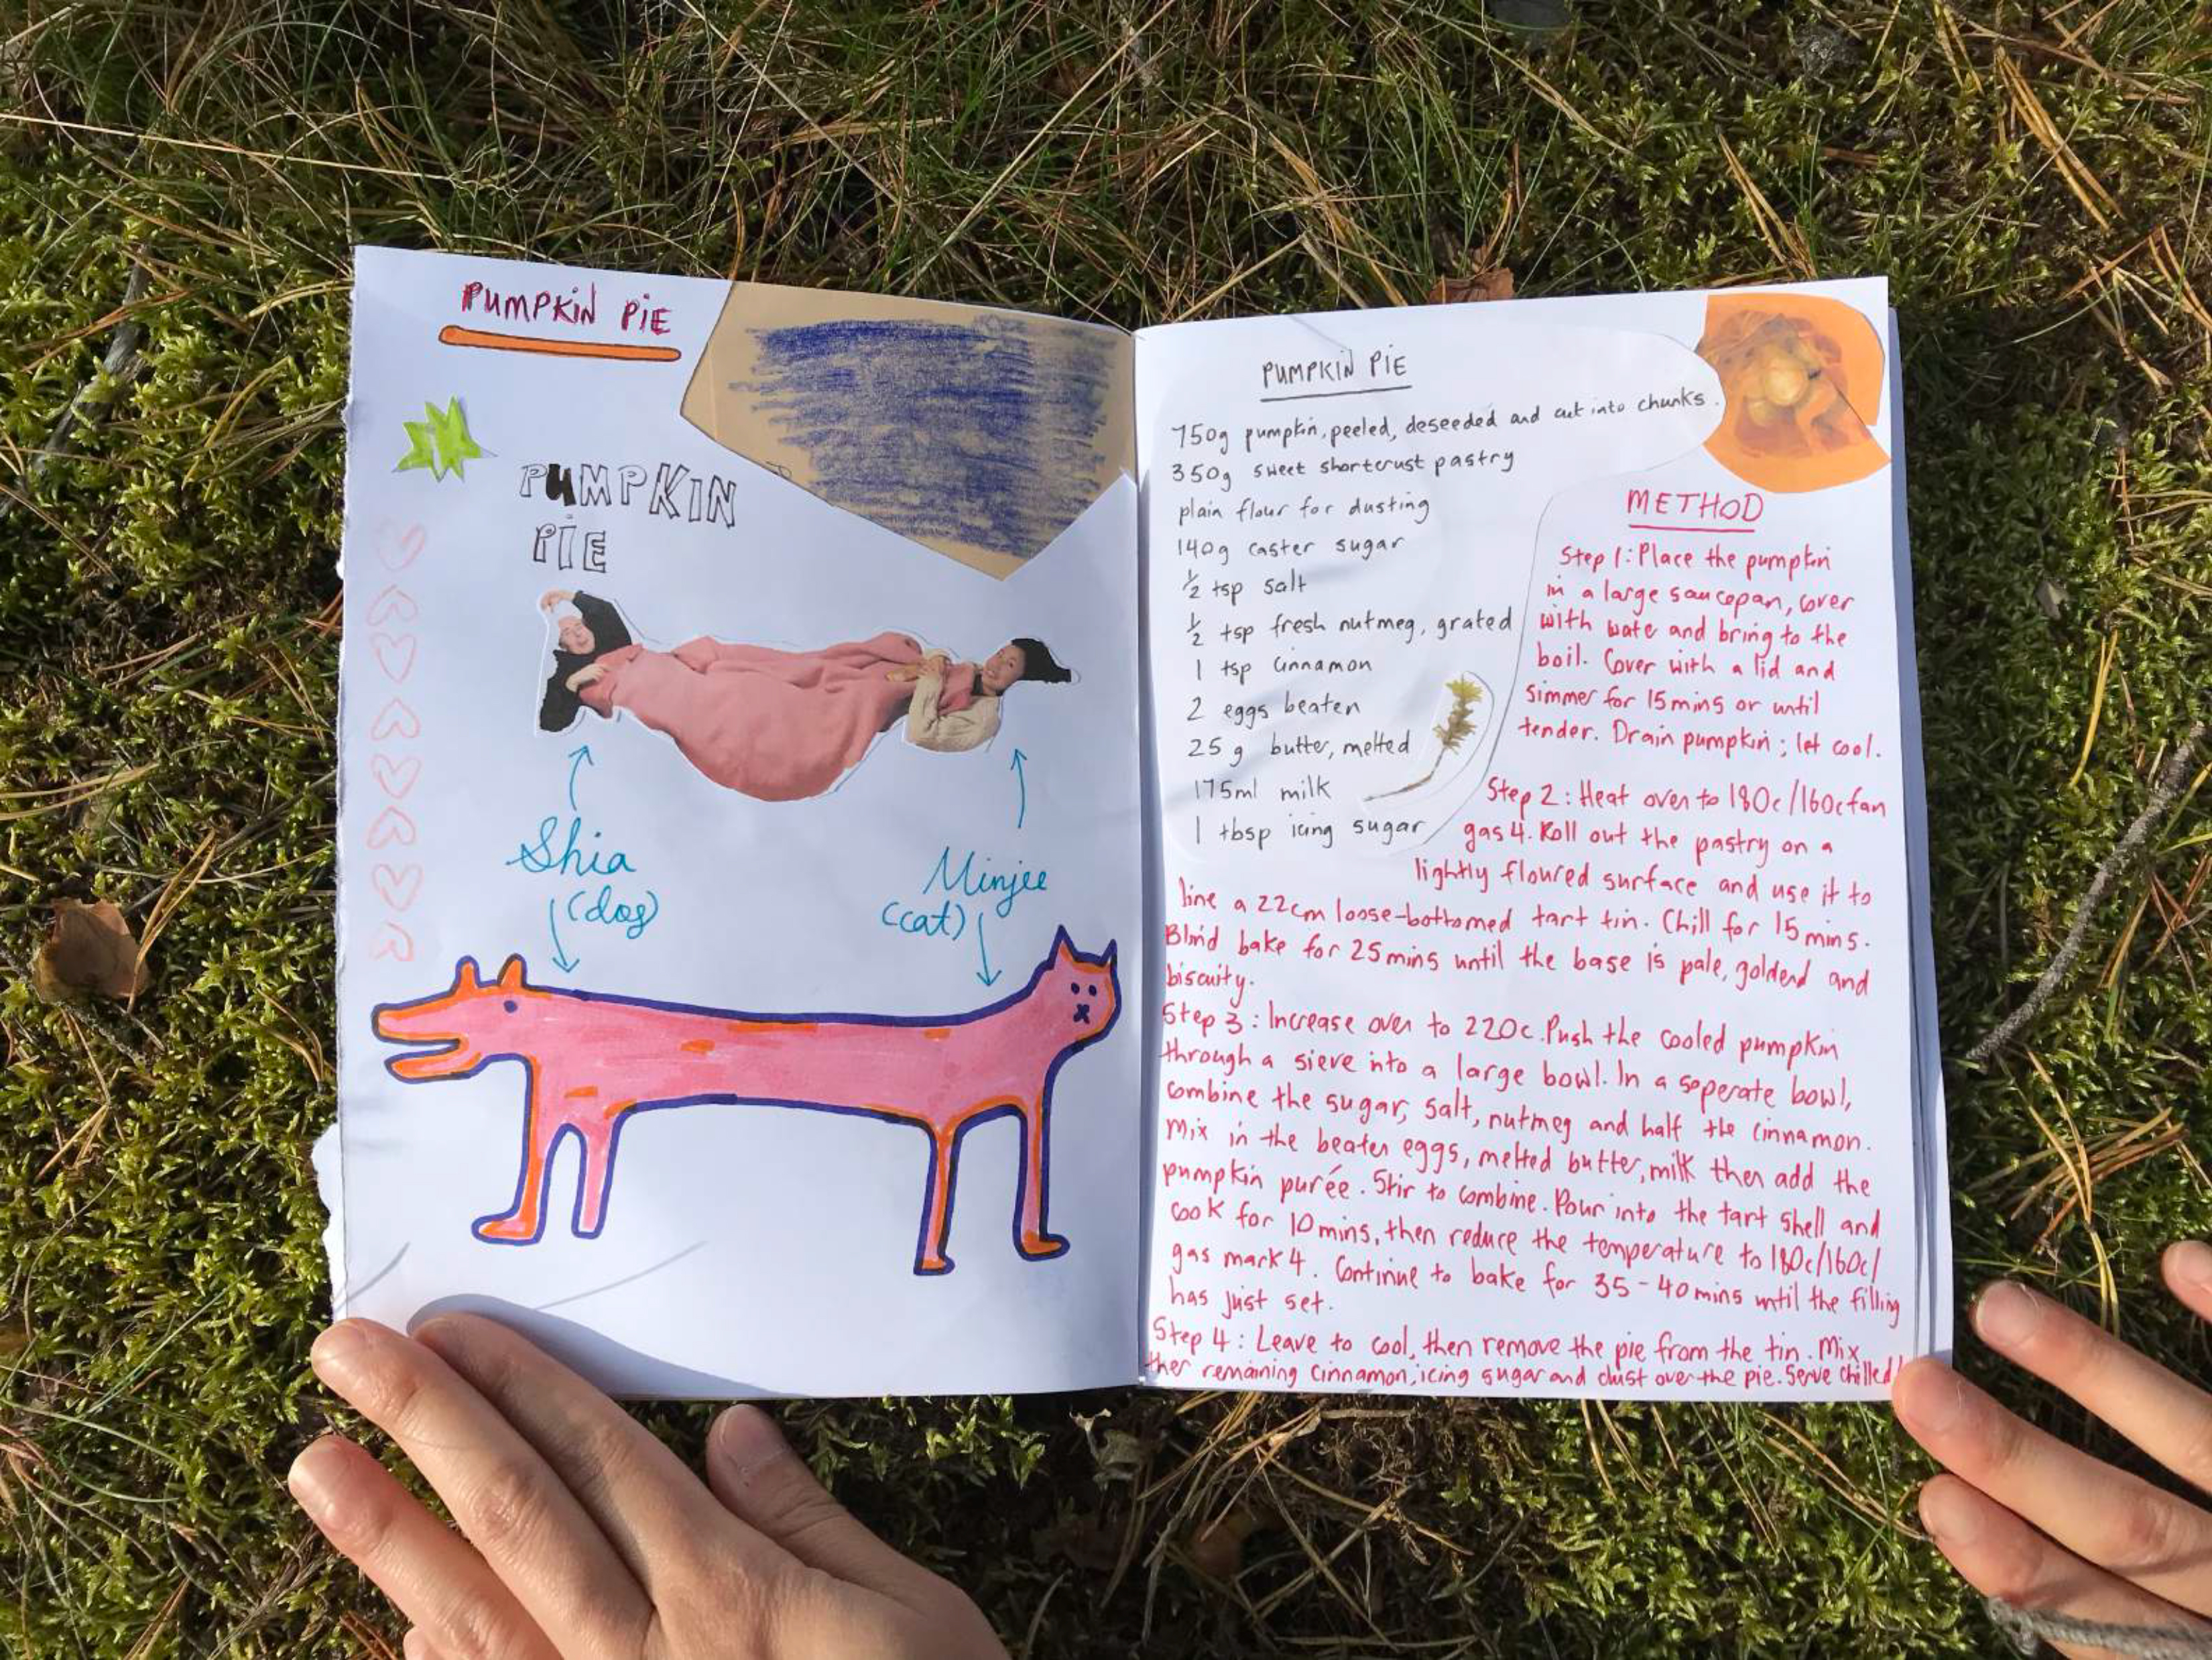 PUMPKIN PIE
PUMPKIN
PIE
Shia
(dog)
Minjee
(cat)
PUMPKIN PIE
750g pumpkin, peeled, deseeded and cut into chunks.
350g sweet shortcrust pastry
plain flour for dusting
140g caster sugar
½ tsp salt
½ tsp fresh nutmeg, grated
1 tsp cinnamon
2 eggs beaten
25g butter, melted
175ml milk
1 tbsp icing sugar
METHOD
Step 1: Place the pumpkin
in a large saucepan, cover
with wate and bring to the
boil. Cover with a lid and
simmer for 15mins or until
tender. Drain pumpkin; let cool.
Step 2: Heat oven to 180c/160c fan
gas 4. Roll out the pastry on a
lightly floured surface and use it to
line a 22cm loose-bottomed tart tin. Chill for 15 mins.
Blind bake for 25mins until the base is pale, goldend and
biscuity.
Step 3: Increase oven to 220c. Push the cooled pumpkin
through a sieve into a large bowl. In a seperate bowl,
combine the sugar, salt, nutmeg and half the cinnamon.
Mix in the beaten eggs, melted butter, milk then add the
pumpkin purée. Stir to combine. Pour into the tart shell and
cook for 10mins, then reduce the temperature to 180c/160c/
gas mark 4. Continue to bake for 35-40mins until the filling
has just set.
Step 4: Leave to cool, then remove the pie from the tin. Mix
ther remaining cinnamon, icing sugar and dust over the pie. Serve chilled!